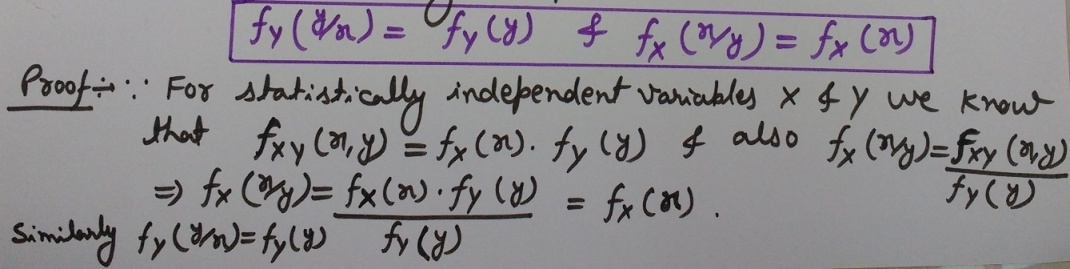 fy (y/x) = fy (y) & fx (x/y) = fx (x)
Proof÷ ∵ For statistically independent variables X & Y we know
that fxy (x,y) = fx (x). fy (y) & also fx (x/y) = fxy (x,y) / fy (y)
⇒ fx (x/y) = fx (x) . fy (y) / fy (y) = fx (x) .
Similarly fy (y/x) = fy (y)